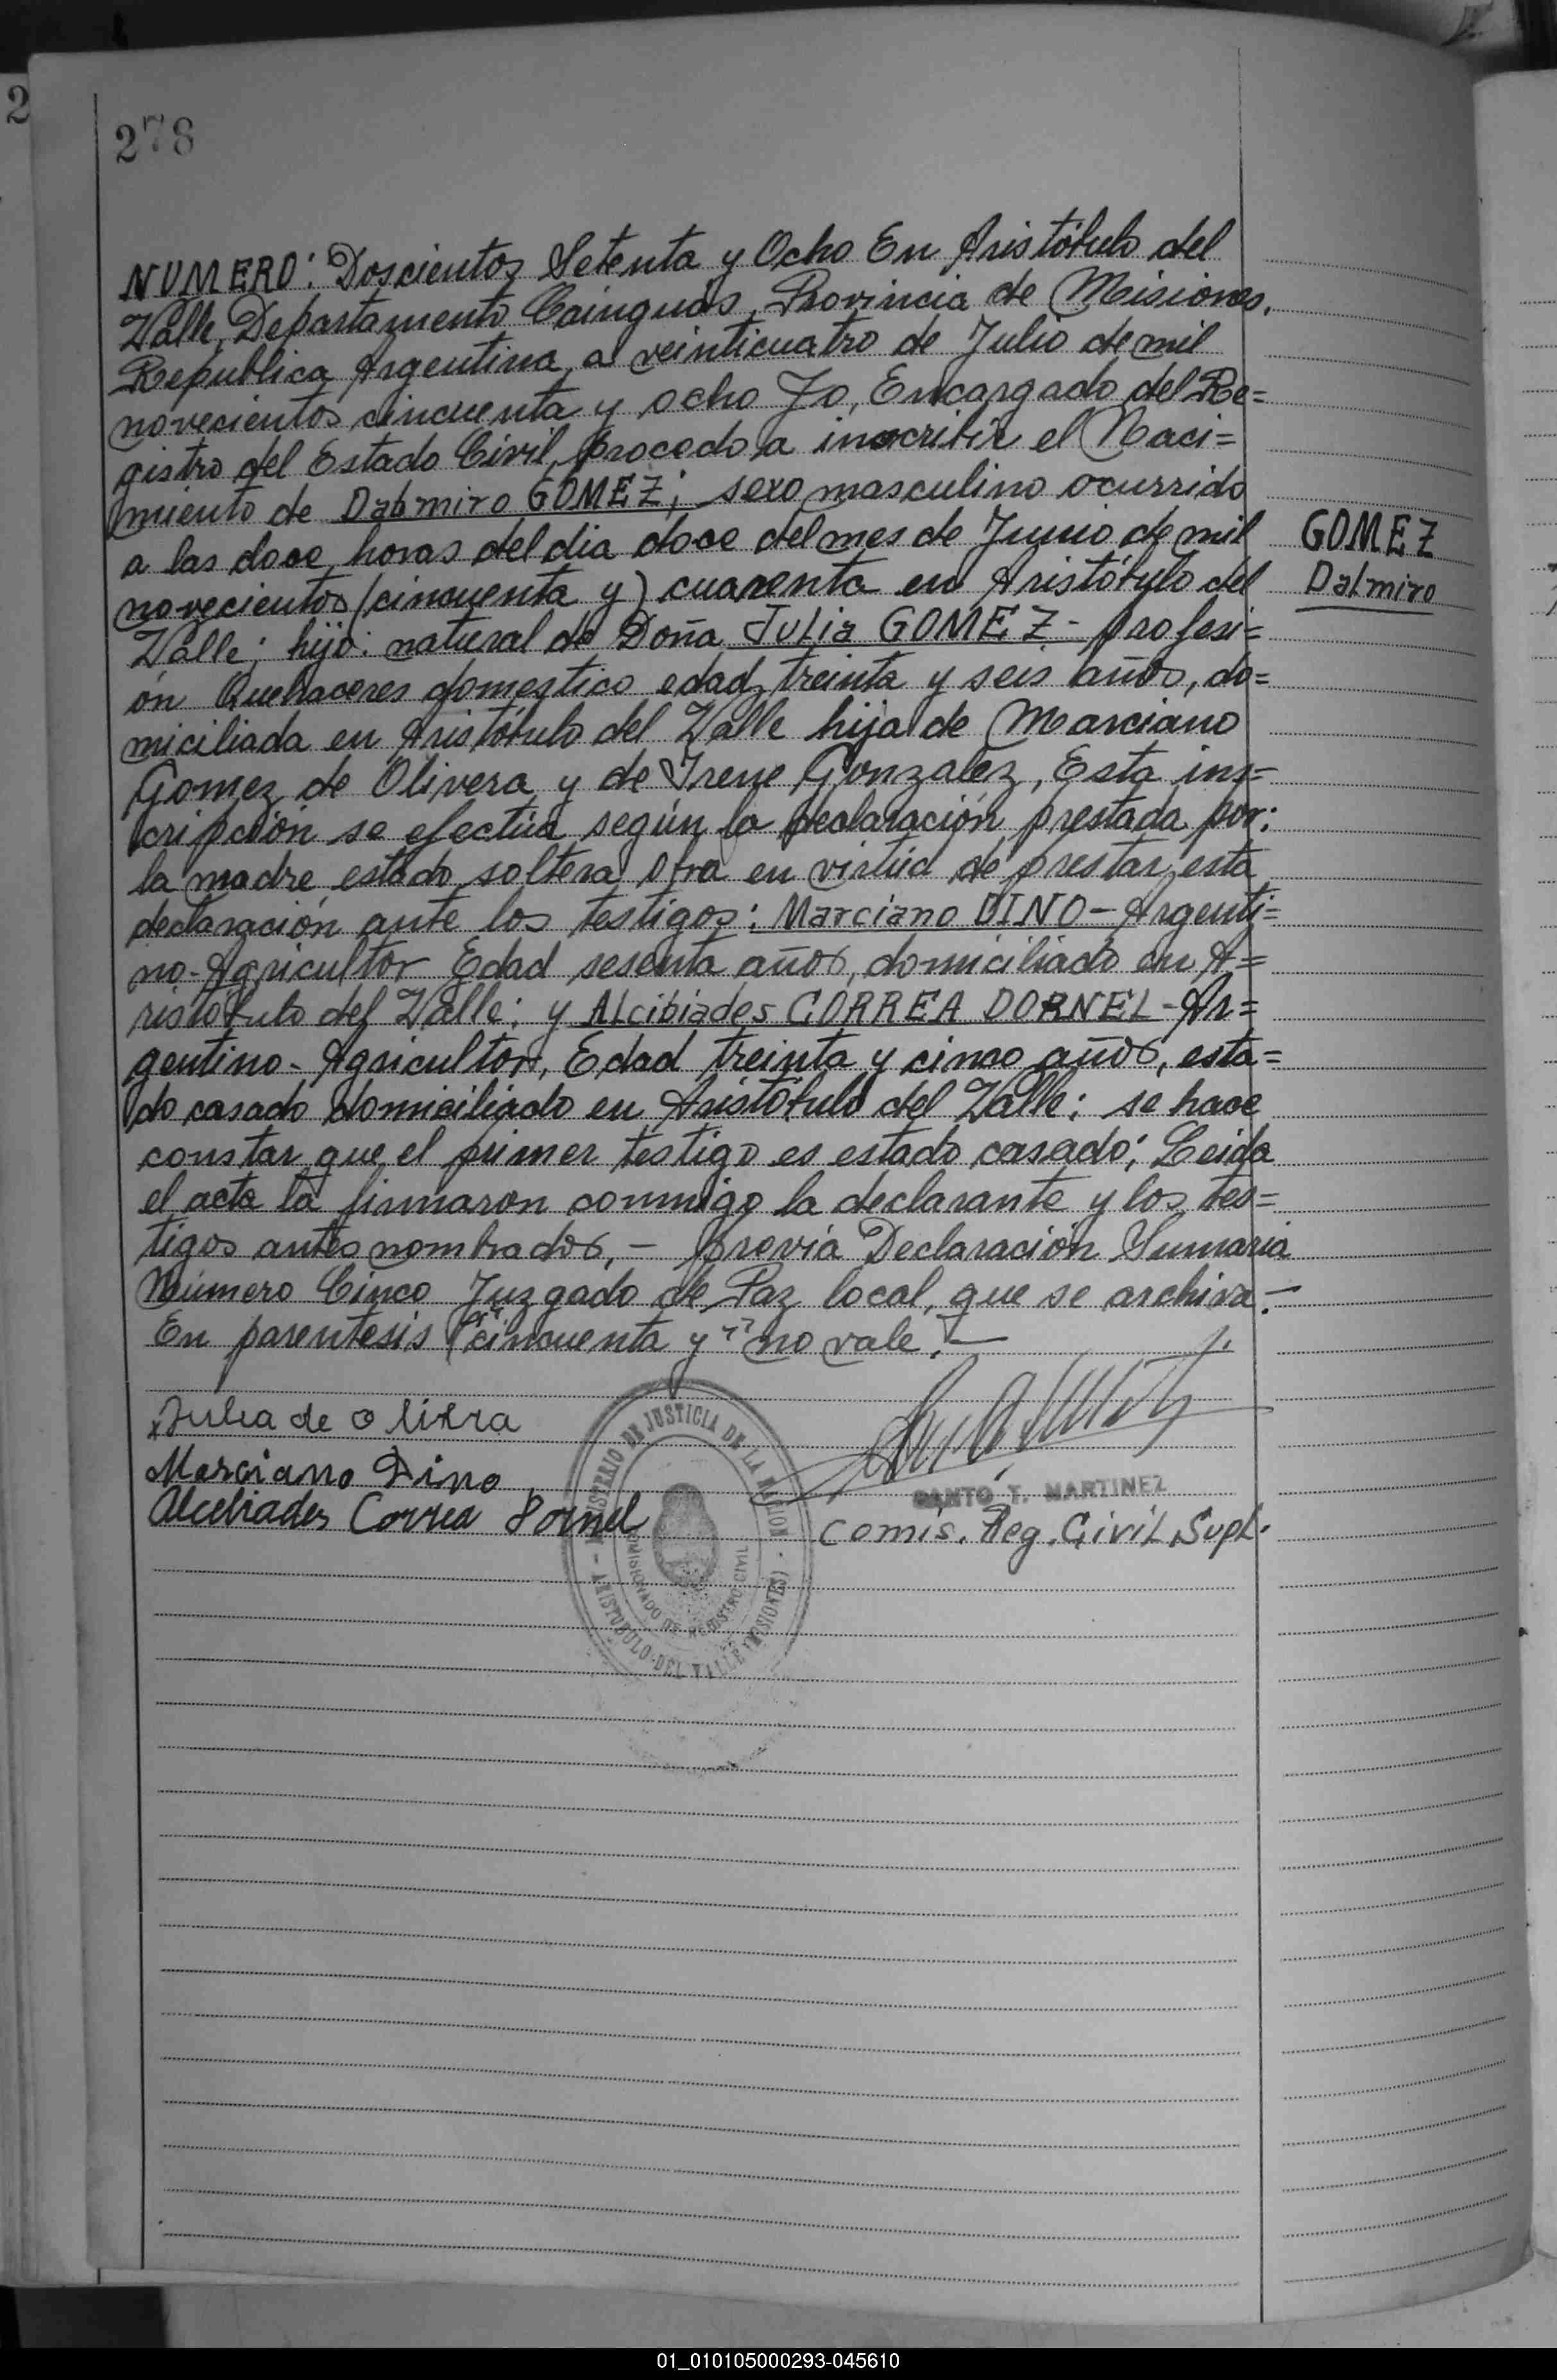 2
278
NUMERO: Doscientos Setenta y Ocho En Aristóbulo del
Valle, Departamento Cainguás, Provincia de Misiones,
República Argentina, a veinticuatro de Julio de mil
novecientos cincuenta y ocho Yo, Encargado del Re=
gistro del Estado Civil, procedo a inscribir el Naci=
miento de Dalmiro GOMEZ; sexo masculino ocurrido
a las doce horas del dia doce del mes de Junio de mil
novecientos (cincuenta y) cuarenta en Aristóbulo del
Valle; hijo: natural de Doña Julia GOMEZ - profesi=
ón Quehaceres domestico edad, treinta y seis años, do=
miciliada en Aristóbulo del Valle hija de Marciano
Gomez de Olivera y de Irene Gonzalez, Esta ins=
cripción se efectúa según la declaración prestada por:
la madre, estado soltera en virtud de prestar esta
declaración ante los testigos: Marciano DINO - Argenti=
no - Agricultor Edad sesenta años, domiciliado en A=
ristóbulo del Valle; y Alcibiades CORREA DORNEL - Ar=
gentino - Agricultor, Edad treinta y cinco años, esta=
do casado domiciliado en Aristóbulo del Valle; se hace
constar que el primer testigo es estado casado; Leida
el acta la firmaron conmigo la declarante y los tes=
tigos antes nombrados, - previa Declaración Sumaria
Número Cinco Juzgado de Paz local, que se archiva. -
En parentesis "(cincuenta y" no vale. -
GOMEZ
Dalmiro
Julia de Olivra
Marciano Dino
Alcebiades Correa Dornel
SANTO T. MARTINEZ
Comis. Reg. Civil Supl.
MINISTERIO DE JUSTICIA DE LA NACION
ARISTOBULO DEL VALLE (MISIONES)
COMISIONADO DE REGISTRO CIVIL
01_010105000293-045610